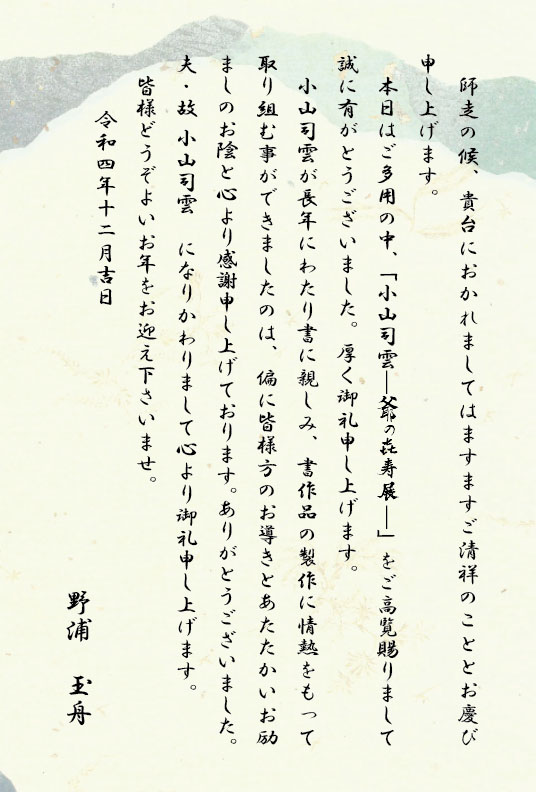 師走の候、貴台におかれましてはますますご清祥のこととお慶び
申し上げます。
本日はご多用の中、「小山司雲―爺の㐂寿展―」をご高覧賜りまして
誠に有がとうございました。厚く御礼申し上げます。
小山司雲が長年にわたり書に親しみ、書作品の製作に情熱をもって
取り組む事ができましたのは、偏に皆様方のお導きとあたたかいお励
ましのお陰と心より感謝申し上げております。ありがとうございました。
夫・故 小山司雲 になりかわりまして心より御礼申し上げます。
皆様どうぞよいお年をお迎え下さいませ。
令和四年十二月吉日
野浦 玉舟